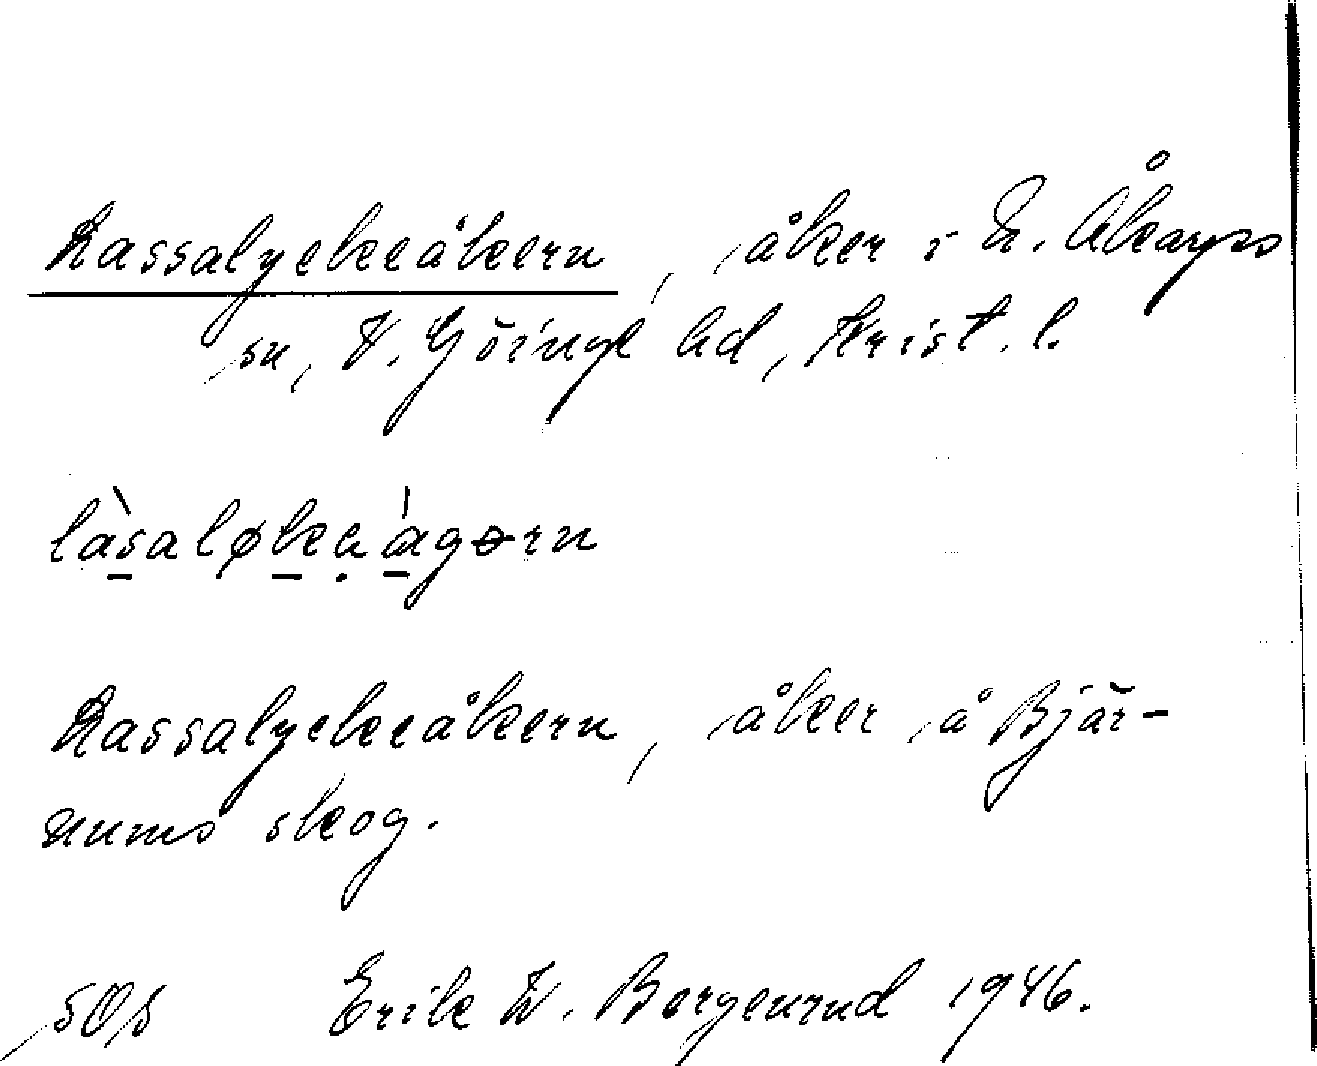 Lassalyckeåkern, åker i N. Åkarps
sn, V. Göinge hd, Krist. l.
làsaløkaàgərn
Lassalyckeåkern, åker å Bjär-
nums skog.
Erik W. 1946.